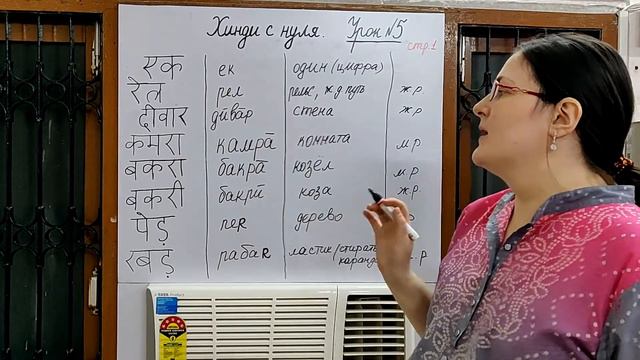 Хинди с нуля. Урок №5
стр.1
एक ек один (цифра)
रेल рел рельс, ж.д путь ж.р.
दीवार дӣва̄р стена ж.р.
कमरा камра̄ комната м.р
बकरा бакра̄ козёл м.р
बकरी бакрӣ коза ж.р.
पेड़ пеR дерево р
रबड़ рабаR ластик/стирать каранда . р